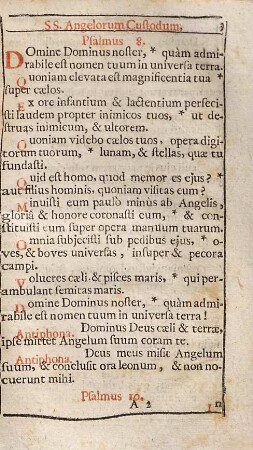 SS. Angelorum Custodum. 3
Psalmus 8.
Domine Dominus noster, * quàm admi-
rabile est nomen tuum in universa terra.
Quoniam elevata est magnificentia tua *
super cælos.
Ex ore infantium & lactentium perfeci-
sti laudem propter inimicos tuos, * ut de-
struas inimicum, & ultorem.
Quoniam videbo cælos tuos, opera digi-
torum tuorum, * lunam, & stellas, quæ tu
fundasti.
Quid est homo, quod memor es ejus? *
aut filius hominis, quoniam visitas eum?
Minuisti eum paulò minùs ab Angelis,
gloriâ & honore coronasti eum, * & con-
stituisti eum super opera manuum tuarum.
Omnia subjecisti sub pedibus ejus, * o-
ves, & boves universas, insuper & pecora
campi.
Volucres cæli & pisces maris, * qui per-
ambulant semitas maris.
Domine Dominus noster, * quàm admi-
rabile est nomen tuum in universa terra!
Antiphona. Dominus Deus cæli & terræ,
ipse mittet Angelum suum coram te.
Antiphona. Deus meus misit Angelum
suum, & conclusit ora leonum, & non no-
cuerunt mihi.
Psalmus 10.
A 2 In